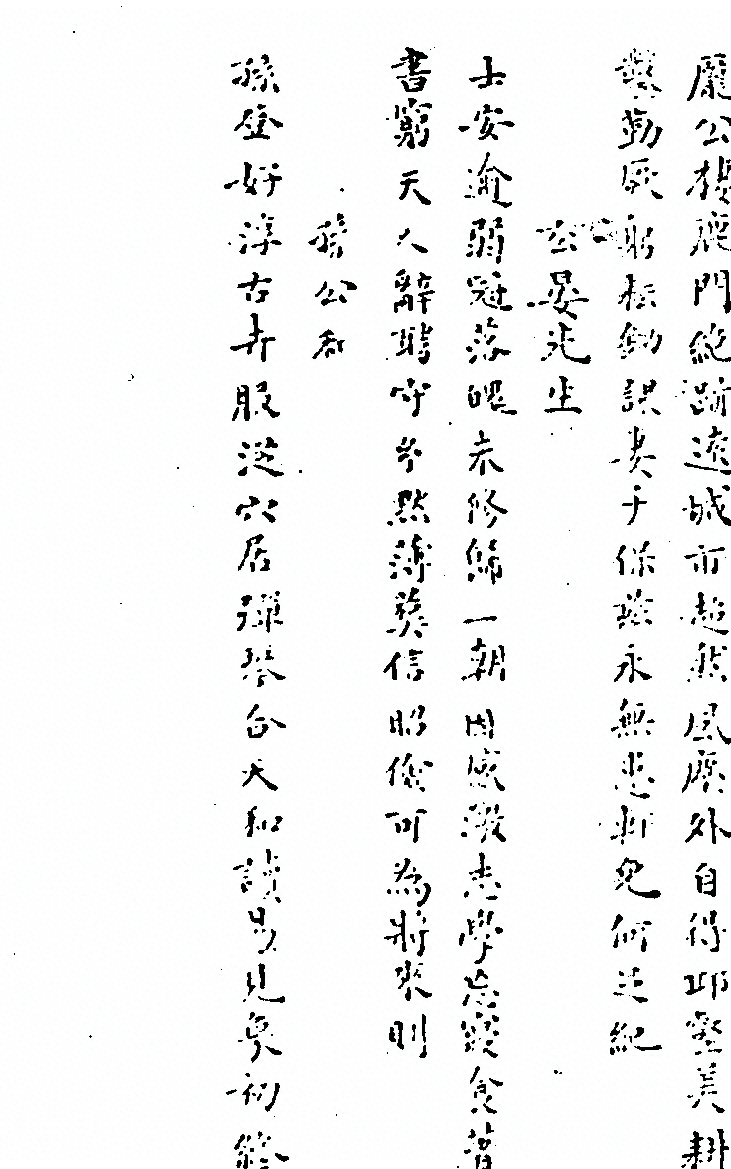 龐公棲鹿門絶跡遠城市超然風塵外自得邱壑美耕
鑿勤厥躬耘鋤課妻子保茲永無患軒冕何足紀
玄晏先生
士安逾弱冠落魄未修飾一朝因感激志學忘寢食著
書窮天人辭聘守𤣥黙薄葬信昭儉可為將來則
孫公和
孫登好淳古卉服從穴居彈琴合天和讀易見象初終